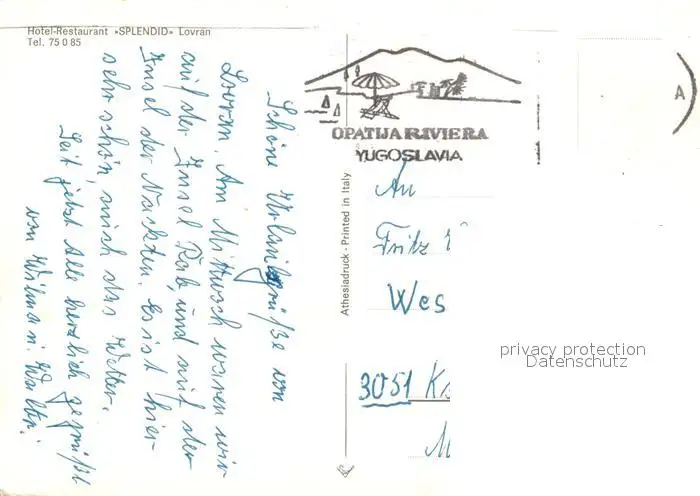 Hotel-Restaurant »SPLENDID« Lovran
Tel. 75 0 85
Schöne Urlaubsgrüße von
Lovran. Am Mittwoch waren wir
auf der Insel Rab, und auf der
Insel der Nackten. Es ist hier
sehr schön, auch das Wetter.
Seit jetzt Alle herzlich gegrüßt
von Wilma u. Walter.
OPATIJA RIVIERA
YUGOSLAVIA
A
Athesiadruck - Printed in Italy
An
Fritz
Wes
3051 K
privacy protection
Datenschutz